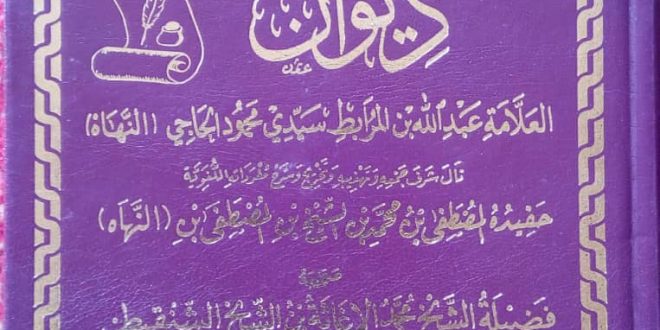 ديوان
العلامة عبد الله بن المرابط سيدي محمود الحاجي (النهاه)
نال شرف جمعه وتهذيبه وتخريج وشرح مفرداته اللغوية
حفيده المصطفى بن محمد بن الشيخ بن المصطفى بن (النهاه)
فضيلة الشيخ محمد الشيخ الشنقيطي